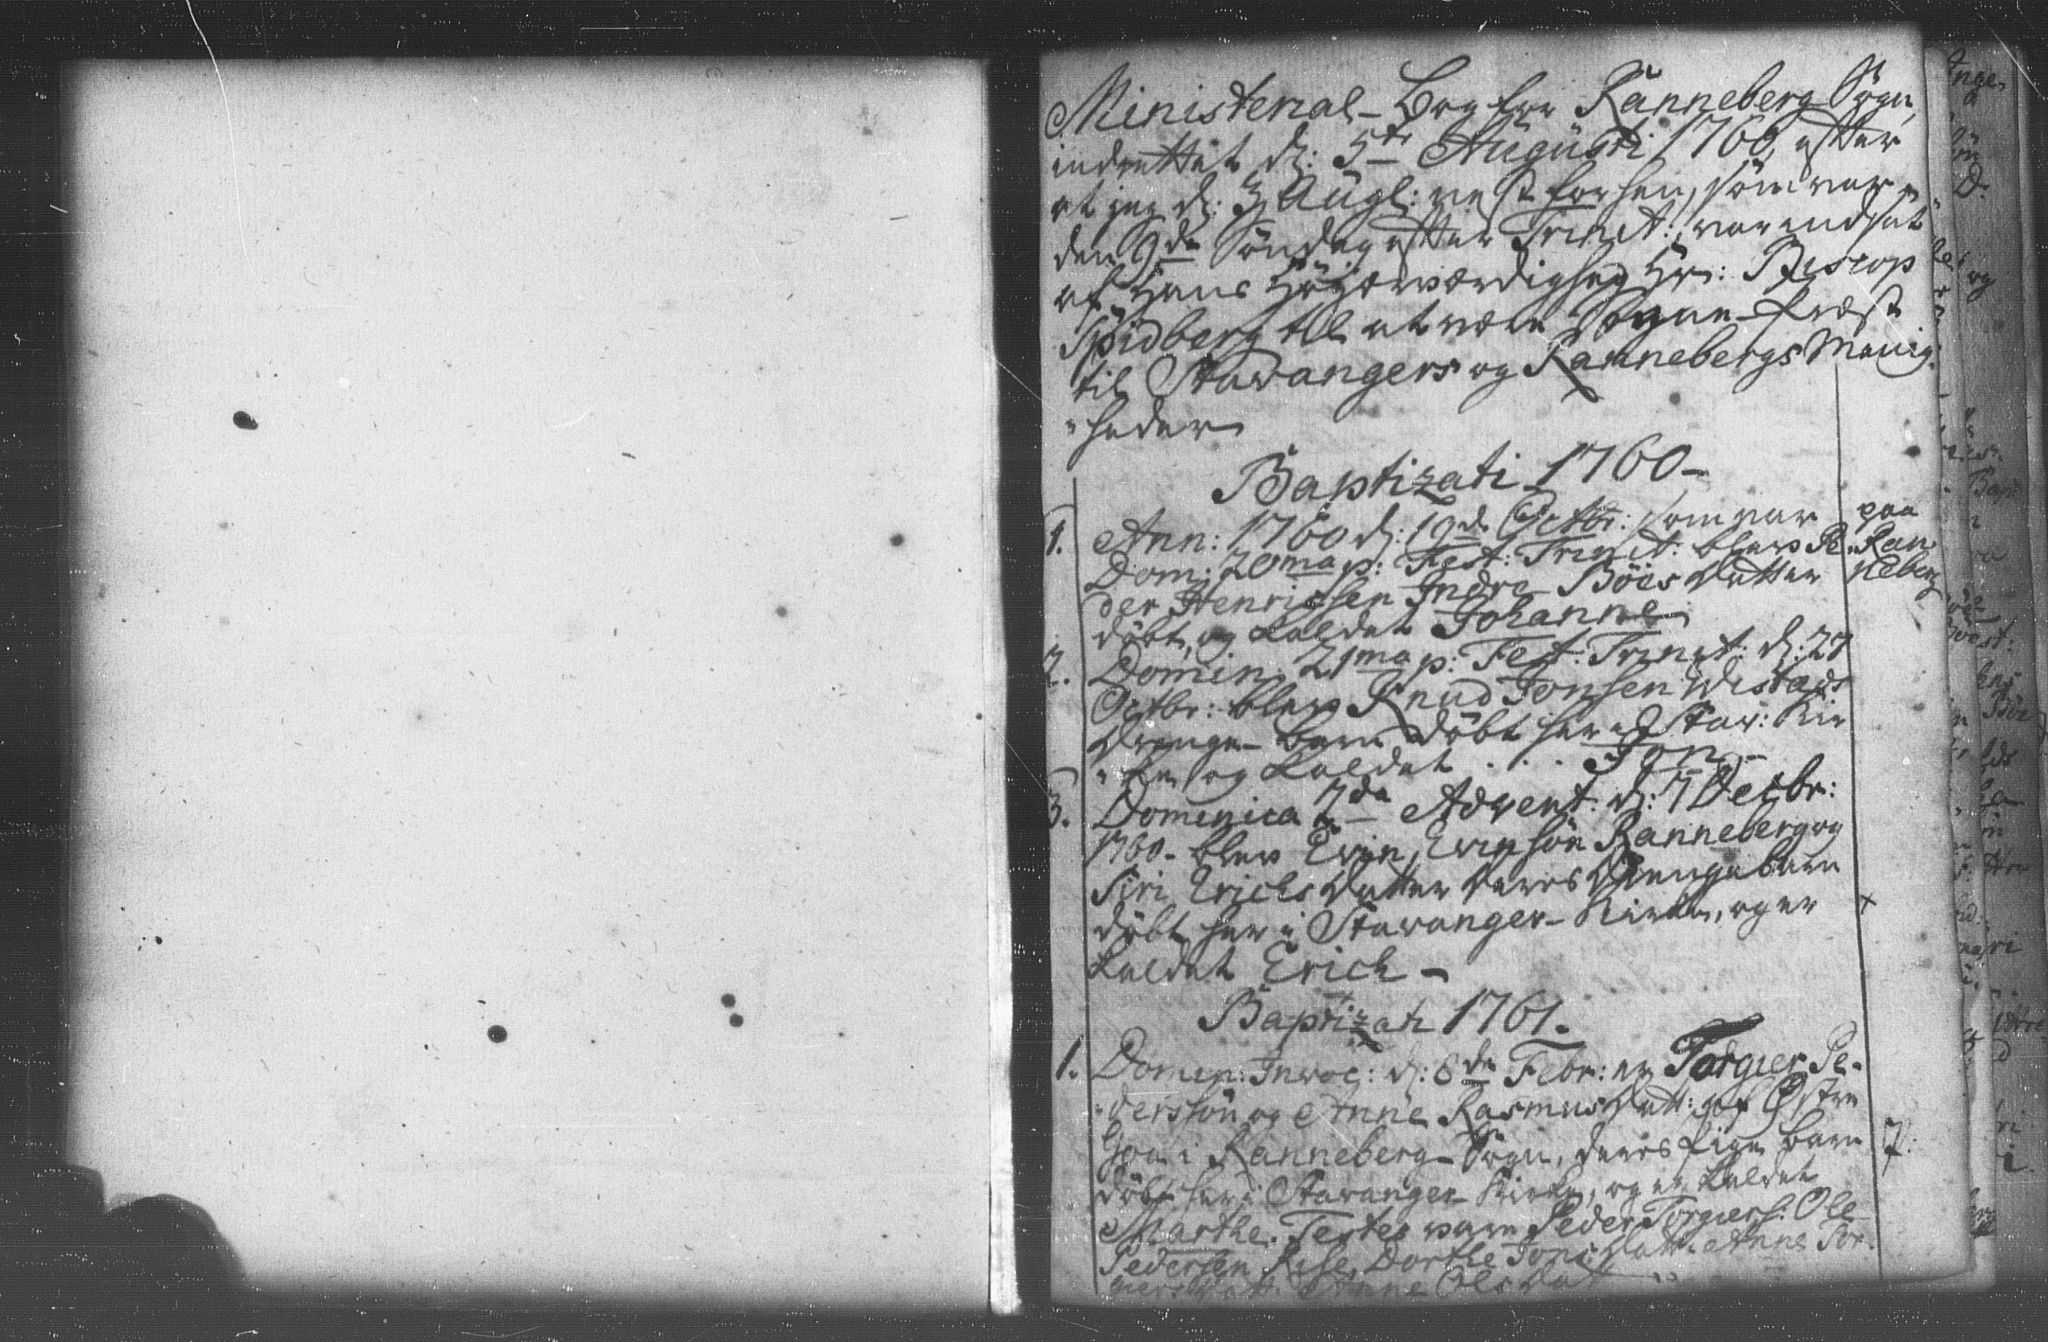 Ministerial-Bog for Ranneberg Sogn,
indrettet d: 5te Augusti 1760, efter
at jeg d: 3 Augl: nest forhen, som var
den 9de Søndag efter Trinit: var indsat
af Hans Höyærværdighed Hr: Biscop
Spidberg til at være Sogne-Præst
til Stavangers og Rannebergs Menig-
heder
Baptizati 1760-
1. Ann: 1760 d: 19de Octbr: som var
Dom: 20ma p: Fest: Trinit: blev Pe-
der Henrichsen Indre Böes Datter
döbt, og kaldet Johanne
paa
Ran-
neberg
2. Domin: 21ma p: Fest: Trinit: d: 27
Octbr: blev Knud Jonsen Wistads
Drenge-barn döbt her i Stav: Kir-
ken og kaldet . . . Jon -
3. Dominica 2da Advent: d: 7 Decbr:
1760- blev Erich Erichsön Ranneberg og
Siri Erichs Datter Deres Drengebarn
döbt her i Stavanger-Kirke, og er
x
kaldet Erich -
Baptizati 1761.
1. Domin: Invoc: d: 8de Febr: er Torgier Pe-
dersön og Anne Rasmus Datt: af Østre
Goa i Ranneberg Sogn, deres Pige-barn
7.
döbt her i Stavanger Kirke, og er kaldet
Marthe. Testes vare Peder Torgiers: Ole
Pedersen Rise, Dorthe Jons Datt: Anne Tor-
giers Datt: Anne Ols Dat